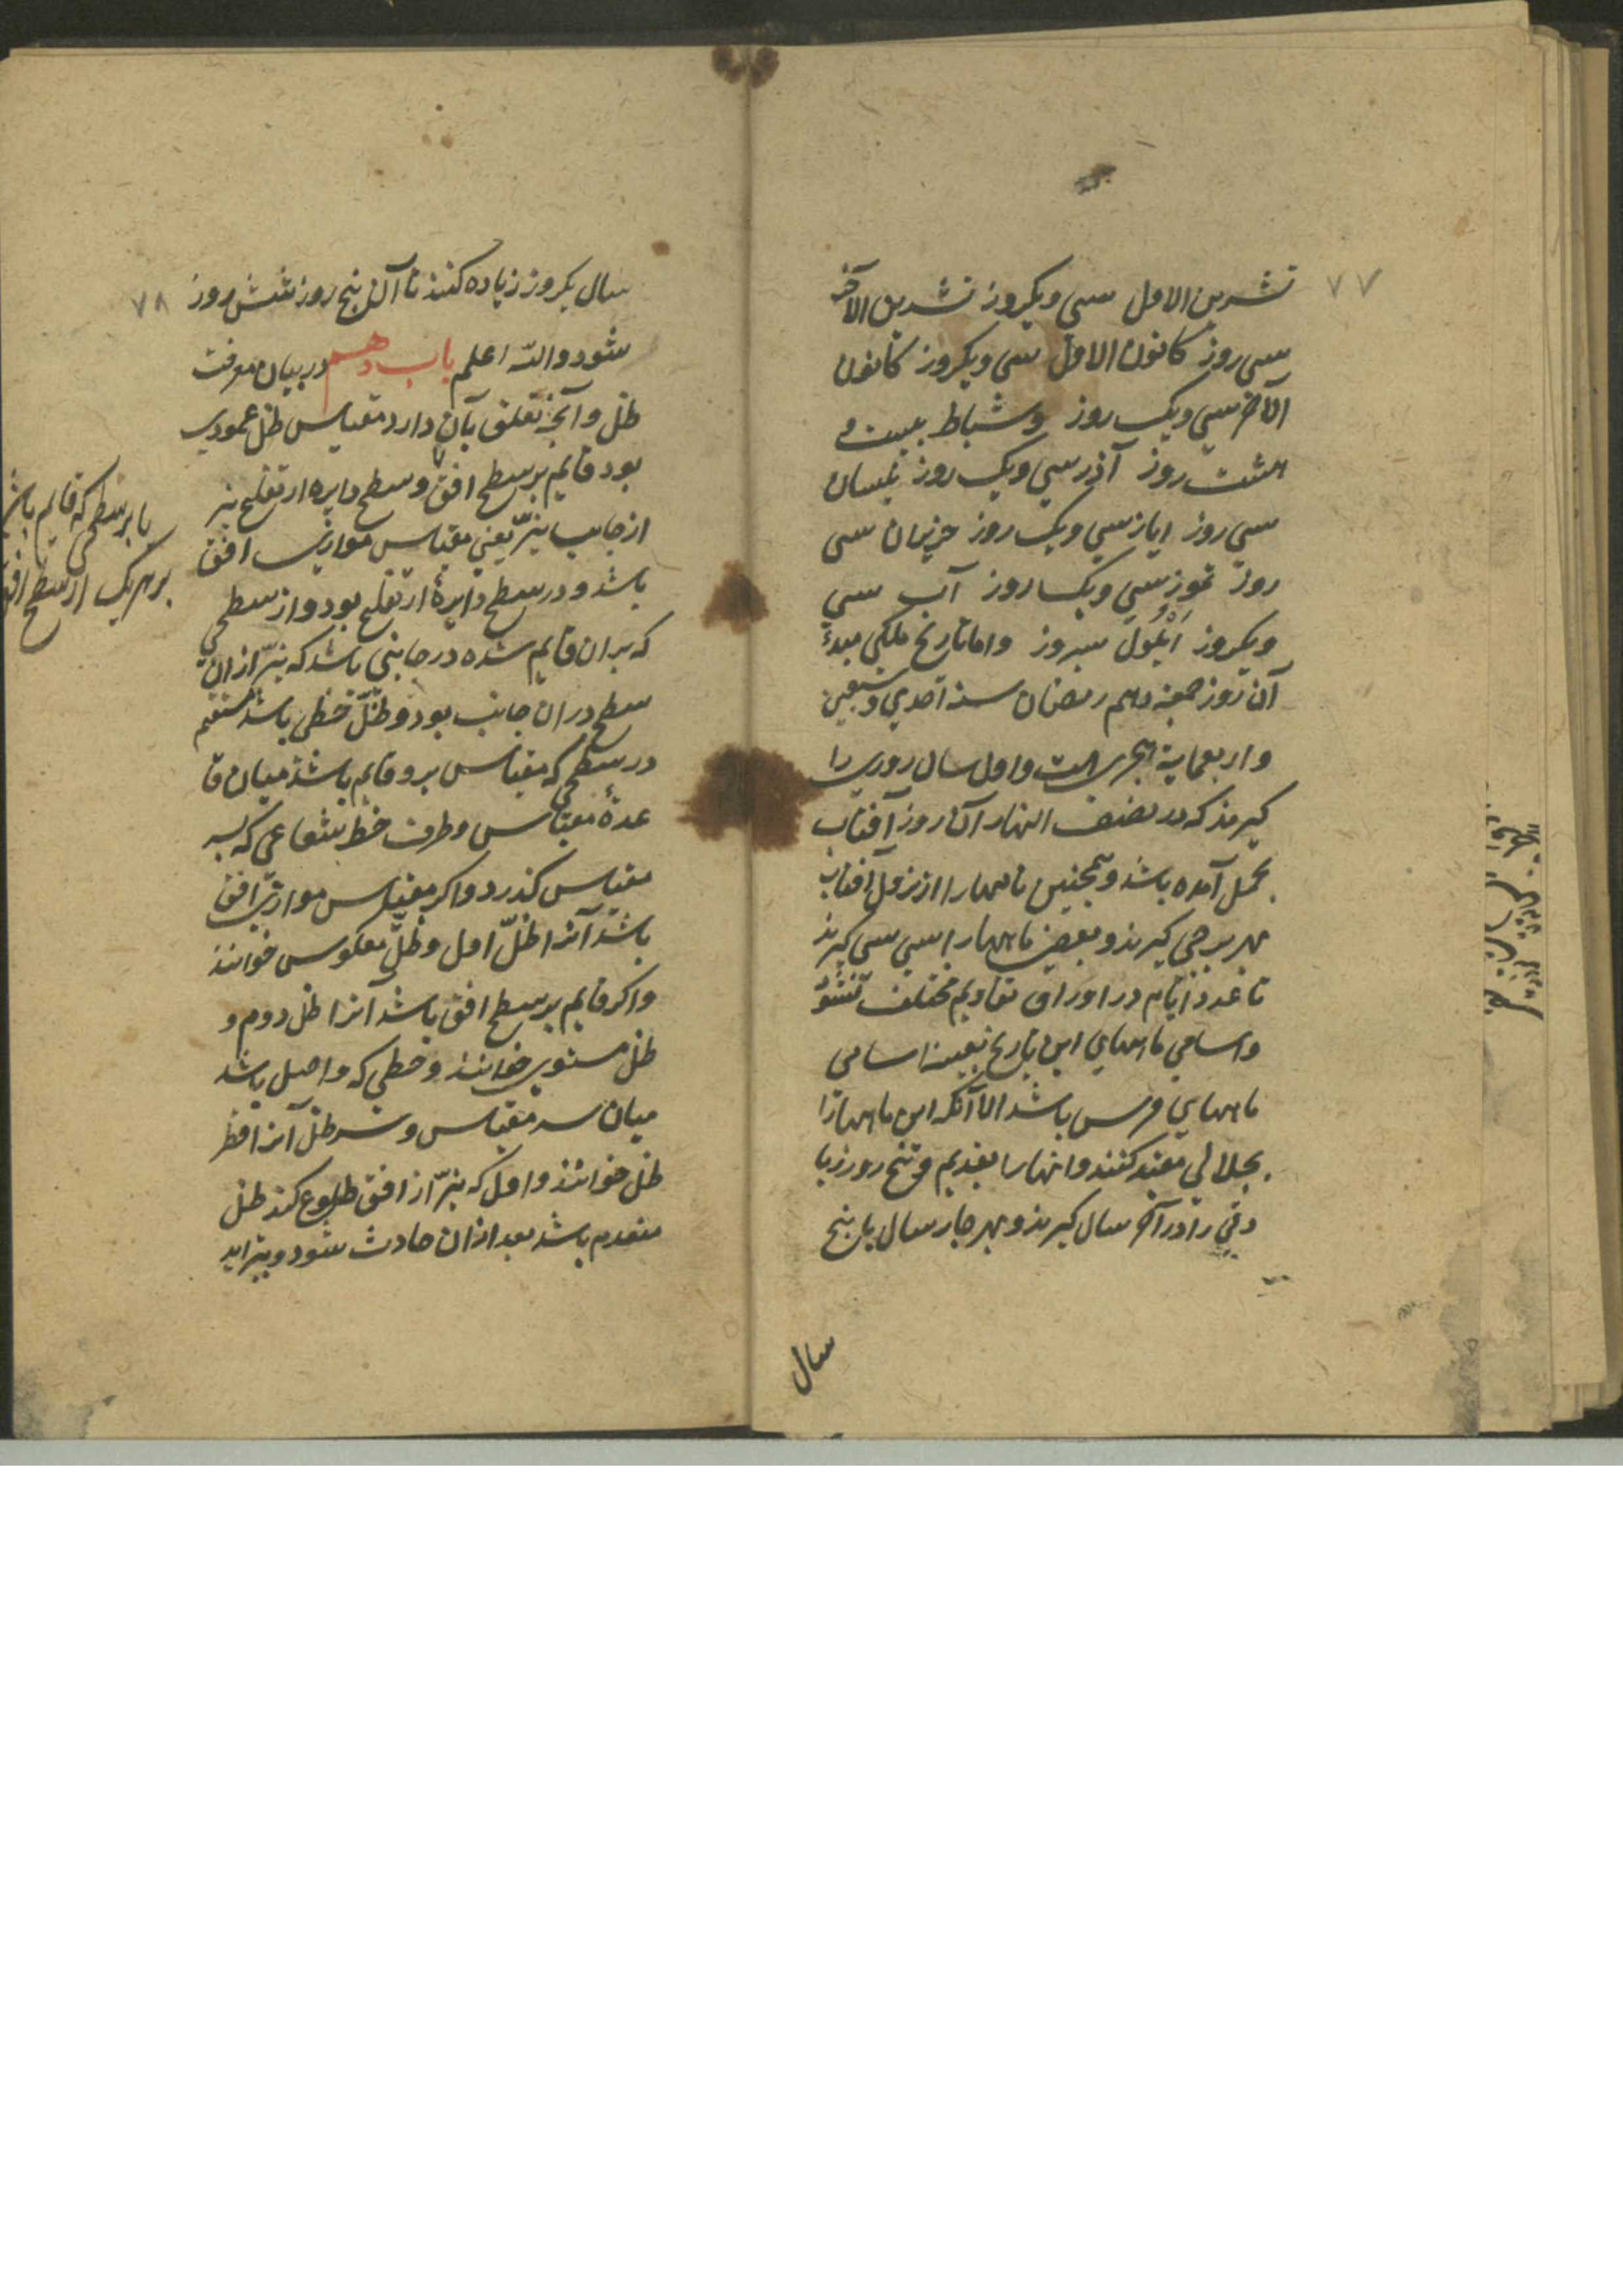 ۷۷
تشرین الاول سی ویکروز تشرین الآخر
سی روز کانون الاول سی ویکروز کانون
الآخر سی ویک روز وشباط بیست و
هشت روز آذر سی ویک روز نیسان
سی روز ایار سی ویک روز حزیران سی
روز تموز سی ویک روز آب سی
ویکروز اَیْلُول سیروز واما تاریخ ملکی مبدء
آن روز جمعه دهم رمضان سنه احدی وسبعین
واربعمایة هجری است واول سال روزی را
کیرند که در نصف النهار آن روز آفتاب
بحمل آمده باشد وهمچنین ماهها را از نزول آفتاب
بهر برجی کیرند وبعضی ماهها را سی سی کیرند
تا عدد ایّام در اوراق تقاویم مختلف نشود
واسامی ماههای این تاریخ بعینه اسامی
ماههای فرس باشد الا آنکه این ماهها را
بجلالی مقید کنند وانها را بقدیم وپنج روز زیا
دتی را در آخر سال کیرند وبهر چار سال یا پنج
سال
۷۸
سال یکروز زیاده کنند تا آن پنج روز شش روز
شود والله اعلم باب دهم در بیان معرفت
ظل وآنچه تعلق بآن دارد مقیاس ظل عمودی
بود قایم بر سطح افق وسطح دایره ارتفاع نیر
از جانب نیّر یعنی مقیاس موازی افق
باشد ودر سطح دایرهٔ ارتفاع بود واز سطحی
که بران قایم شده در جانبی باشد که نیّر از ان
سطح دران جانب بود وظلّ خطی باشد مستقیم
در سطحی که مقیاس برو قایم باشد میان قا
عدهٔ مقیاس وطرف خط شعاعی که بسر
مقیاس کذرد واکر مقیاس موازی افق
باشد آنرا ظلّ اول وظلّ معکوس خوانند
واکر قایم بر سطح افق باشد آنرا ظل دوم و
ظل مستوی خوانند وخطی که واصل باشد
میان سر مقیاس وسر ظل آنرا قطر
ظل خوانند واول که نیّر از افق طلوع کند ظل
منعدم باشد بعد ازان حادث شود وبتزاید
یا بر سطحی که قایم باشد
بر هر یک از سطح افق